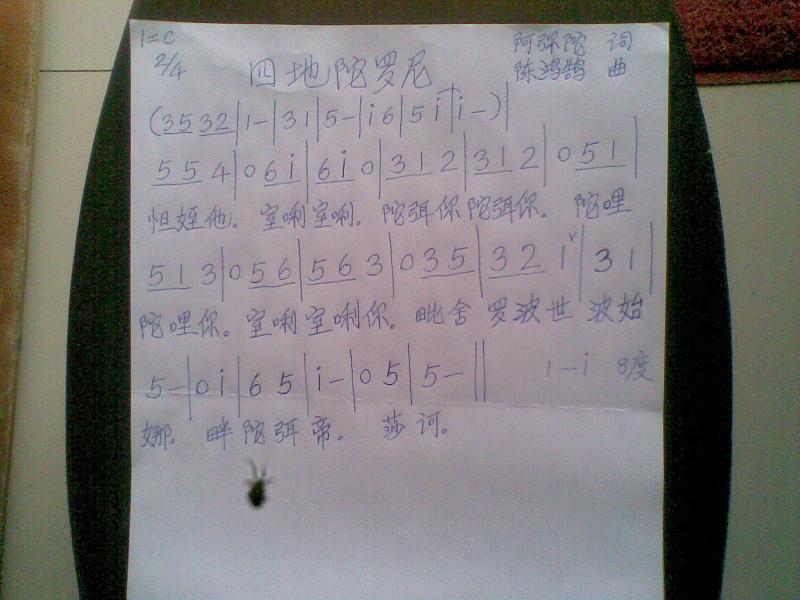 1=C
阿弥陀 词
2/4 四地陀罗尼 陈鸿鹄 曲
(3532|1-|31|5-|i6|5i|i-)|
554|06i|6i0|312|312|051|
怛姪他。室唎室唎。陀弭你陀弭你。陀哩
513|056|563|035|32i|31|
陀哩你。室唎室唎你。毗舍罗波世波始
5-|0i|65|i-|05|5-|| 1-i 8度
娜。畔陀弭帝。莎诃。